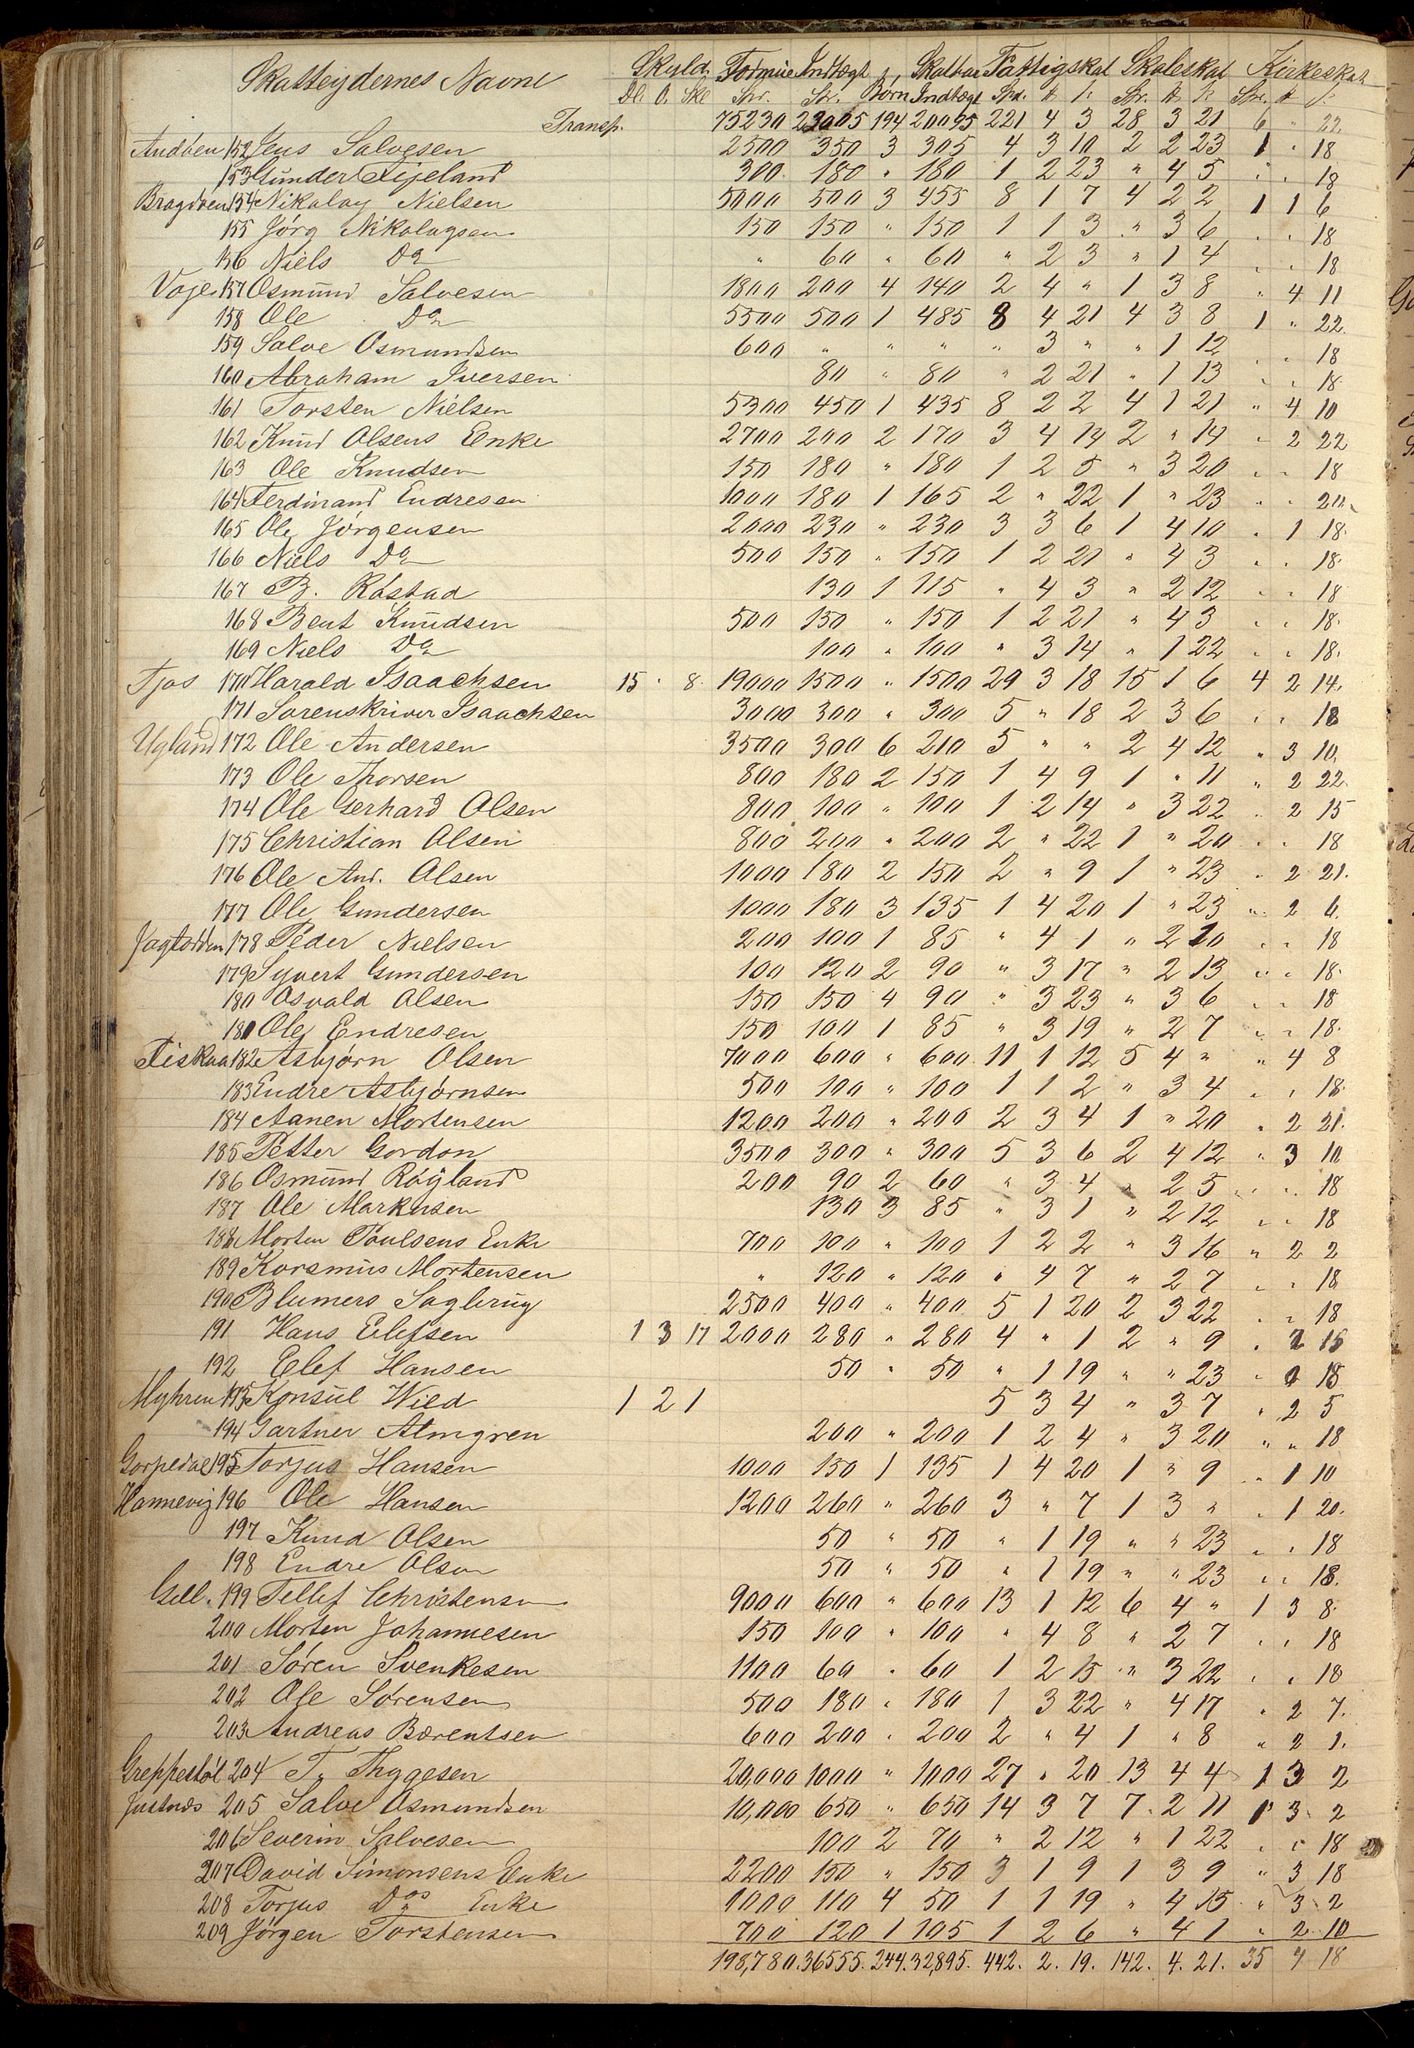 Skatteydernes Navne Skyld Formue Indtægt Børn Skatbar Indtægt Fattigskat Skoleskat Kirkeskat
Dl O. Skl Spr. Spr. Spd. Spr. Spr.
Transp. 75230 23005 194 20095 221 4 3 28 3 21 6 " 22
Andøen 152 Jens Salvesen 2500 350 3 305 4 3 10 2 2 23 1 " 18
153 Gunder Fijeland 300 180 " 180 1 2 23 " 4 5 " " 18
Bragdøen 154 Nikolay Nielsen 5000 500 3 455 8 1 7 4 2 2 1 1 6
155 Jørg Nikolaysen 150 150 " 150 1 1 3 " 3 6 " " 18
156 Niels Do " 60 " 60 " 2 3 " 1 4 " " 18
Voje 157 Osmund Salvesen 1800 200 4 140 2 4 " 1 3 8 " 4 11
158 Ole Do 5500 500 1 485 8 4 21 4 3 8 1 " 22
159 Salve Osmundsen 600 " " " " 3 " " 1 12 " " 18
160 Abraham Iversen 80 " 80 " 2 21 " 1 13 " " 18
161 Torsten Nielsen 5300 450 1 435 8 2 2 4 1 21 " 4 10
162 Knud Olsens Enke 2700 200 2 170 3 4 14 2 " 14 " 2 22
163 Ole Knudsen 150 180 " 180 1 2 5 " 3 20 " " 18
164 Ferdinand Endresen 1000 180 1 165 2 " 22 1 " 23 " " 20
165 Ole Jørgensen 2000 230 " 230 3 3 6 1 4 10 " 1 18
166 Niels Do 500 150 " 150 1 2 21 " 4 3 " " 18
167 B. Røstad 130 1 115 " 4 3 " 2 12 " " 18
168 Bent Knudsen 500 150 " 150 1 2 21 " 4 3 " " 18
169 Niels Do 100 " 100 " 3 14 " 1 22 " " 18
Tjos 170 Harald Isaachsen 15 " 8 19000 1500 " 1500 29 3 18 15 1 6 4 2 14
171 Sorenskriver Isaachsen 3000 300 " 300 5 " 18 2 3 6 " " 18
Ugland 172 Ole Andersen 3500 300 6 210 5 " " 2 4 12 " 3 10
173 Ole Thorsen 800 180 2 150 1 4 9 1 " 11 " 2 22
174 Ole Gerhard Olsen 800 100 " 100 1 2 14 " 3 22 " 2 15
175 Christian Olsen 800 200 " 200 2 " 22 1 " 20 " " 18
176 Ole And. Olsen 1000 180 2 150 2 " 9 1 " 23 " 2 21
177 Ole Gundersen 1000 180 3 135 1 4 20 1 " 23 " 2 6
178 Peder Nielsen 200 100 1 85 " 4 1 " 2 10 " " 18
179 Syvert Gundersen 100 120 2 90 " 3 17 " 2 13 " " 18
180 Osvald Olsen 150 150 4 90 " 3 23 " 3 6 " " 18
181 Ole Endresen 150 100 1 85 " 3 19 " 2 7 " " 18
Fiskaa 182 Asbjørn Olsen 7000 600 " 600 11 1 12 5 4 " " 4 8
183 Endre Asbjørnsen 500 100 " 100 1 1 2 " 3 4 " " 18
184 Aanen Mortensen 1200 200 " 200 2 3 4 1 " 20 " 2 21
185 Petter Gordon 3500 300 " 300 5 3 6 2 4 12 " 3 10
186 Osmund Røyland 200 90 2 60 " 3 4 " 2 5 " " 18
187 Ole Markusen 130 3 85 " 3 1 " 2 12 " " 18
188 Morten Poulsens Enke 700 100 " 100 1 2 2 " 3 16 " 2 2
189 Korsmus Mortensen " 120 " 120 " 4 7 " 2 7 " " 18
190 Blumers Saglrug 2500 400 " 400 5 1 20 2 3 22 " " 18
191 Hans Elefsen 1 3 17 2000 280 " 280 4 " 1 2 " 9 " 2 15
192 Elef Hansen 50 " 50 " 1 19 " " 23 " " 18
Myhren 193 Konsul Wild 1 2 1 5 3 4 " 3 7 " 2 5
194 Gartner Almgren 200 " 200 1 2 4 " 3 20 " " 18
Gorpedal 195 Torjus Hansen 1000 150 1 135 1 4 20 1 " 9 " 1 10
Hannevig 196 Ole Hansen 1200 260 " 260 3 " 7 1 3 " " 1 20
197 Knud Olsen 50 " 50 " 1 19 " " 23 " " 18
198 Endre Olson 50 " 50 " 1 19 " " 23 " " 18
Gill 199 Tellef Christensen 9000 600 " 600 13 1 12 6 4 " 1 3 8
200 Morten Johannesen 150 100 " 100 " 4 8 " 2 7 " " 18
201 Søren Svenkesen 1100 60 " 60 1 2 15 " 3 22 " " 18
202 Ole Sørensen 500 180 " 180 1 3 22 " 4 17 " 2 7
203 Andreas Bærentsen 600 200 " 200 2 " 4 1 " 8 " 2 1
Greppestøl 204 T. Thygesen 20,000 1000 " 1000 27 " 20 13 4 4 1 3 2
Justnæs 205 Salve Osmundsen 10,000 650 " 650 14 3 7 7 2 11 1 3 2
206 Severin Salvesen 100 2 70 " 2 12 " 1 22 " " 18
207 David Simonsens Enke 2200 150 " 150 3 1 9 1 3 9 " 3 18
208 Torjus Dos Enke 1000 110 4 50 1 1 19 " 4 15 " 3 2
209 Jørgen Torstensen 700 120 1 105 1 2 6 " 4 1 " 2 10
198,780. 36555. 244. 32,895. 442. 2. 19. 142. 4. 21. 35 " 18